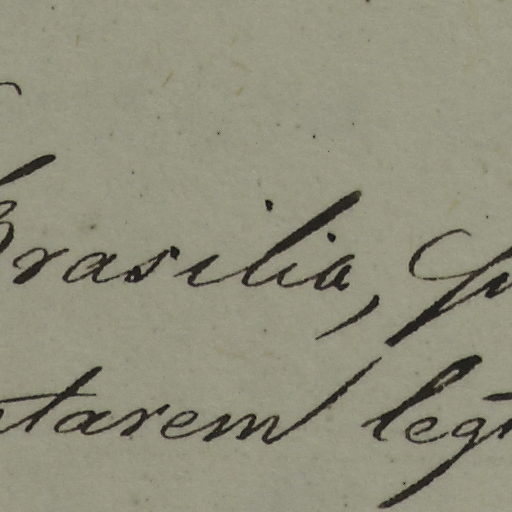 Brasilia,
tarem leg